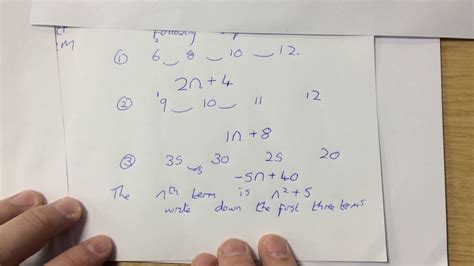 Following
① 6 8 10 12
2n+4
② 9 10 11 12
1n+8
③ 35 30 25 20
-5n+40
The nth term is n²+5
write down the first three terms